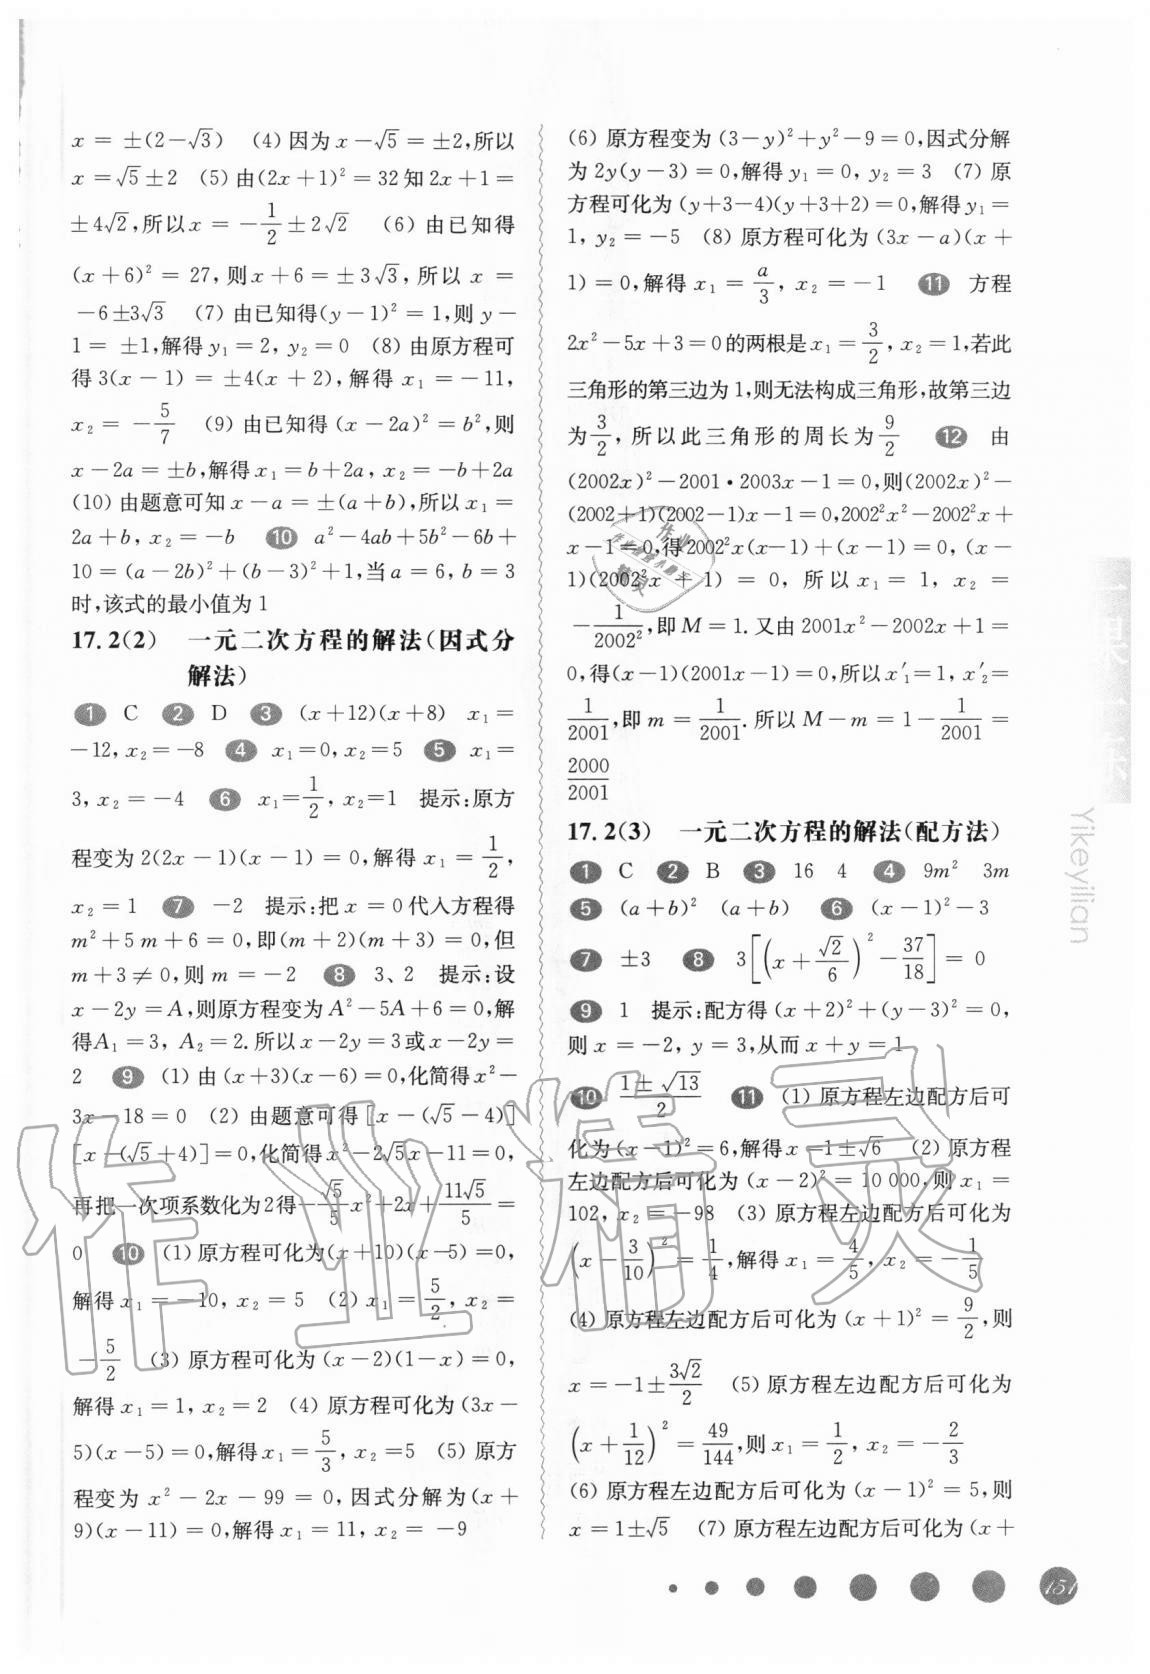 x = ±(2-√3) (4) 因为 x-√5 = ±2,所以
x = √5±2 (5) 由(2x+1)² = 32 知 2x+1 =
±4√2,所以 x = -1/2±2√2 (6) 由已知得
(x+6)² = 27, 则 x+6 = ±3√3, 所以 x =
-6±3√3 (7) 由已知得(y-1)² = 1,则 y-
1 = ±1,解得 y₁ = 2, y₂ = 0 (8) 由原方程可
得 3(x-1) = ±4(x+2), 解得 x₁ = -11,
x₂ = -5/7 (9) 由已知得 (x-2a)² = b²,则
x-2a = ±b,解得 x₁ = b+2a, x₂ = -b+2a
(10) 由题意可知 x-a = ±(a+b),所以 x₁ =
2a+b, x₂ = -b ⑩ a²-4ab+5b²-6b+
10 = (a-2b)²+(b-3)²+1,当 a = 6, b = 3
时,该式的最小值为 1
17.2(2) 一元二次方程的解法(因式分
解法)
① C ② D ③ (x+12)(x+8) x₁ =
-12, x₂ = -8 ④ x₁=0, x₂=5 ⑤ x₁ =
3, x₂ = -4 ⑥ x₁=1/2, x₂=1 提示:原方
程变为 2(2x-1)(x-1) = 0,解得 x₁ = 1/2,
x₂ = 1 ⑦ -2 提示:把 x = 0 代入方程得
m²+5m+6 = 0,即(m+2)(m+3) = 0,但
m+3 ≠ 0,则 m = -2 ⑧ 3、2 提示:设
x-2y = A,则原方程变为 A²-5A+6 = 0,解
得A₁ = 3, A₂ = 2.所以 x-2y = 3 或 x-2y =
2 ⑨ (1) 由 (x+3)(x-6) = 0,化简得 x²-
3x-18 = 0 (2) 由题意可得[x-(√5-4)]
[x-(√5+4)] = 0,化简得 x²-2√5x-11 = 0,
再把一次项系数化为2得-√5/5x²+2x+11√5/5 =
0 ⑩ (1) 原方程可化为(x+10)(x-5) =0,
解得 x₁ = -10, x₂ = 5 (2) x₁ = 5/2, x₂ =
-5/2 (3) 原方程可化为 (x-2)(1-x) = 0,
解得 x₁ = 1, x₂ = 2 (4) 原方程可化为 (3x-
5)(x-5) = 0,解得 x₁ = 5/3, x₂ =5 (5) 原方
程变为 x²-2x-99 = 0, 因式分解为(x+
9)(x-11) = 0,解得 x₁ = 11, x₂ = -9
(6) 原方程变为 (3-y)²+y²-9 = 0,因式分解
为 2y(y-3) = 0,解得 y₁ = 0, y₂ = 3 (7) 原
方程可化为 (y+3-4)(y+3+2) = 0,解得 y₁=
1, y₂ = -5 (8) 原方程可化为 (3x-a)(x+
1) = 0,解得 x₁ = a/3, x₂ = -1 ⑪ 方程
2x²-5x+3=0的两根是x₁=3/2, x₂=1,若此
三角形的第三边为 1,则无法构成三角形,故第三边
为3/2, 所以此三角形的周长为9/2 ⑫ 由
(2002x)²-2001·2003x-1 = 0,则(2002x)²-
(2002+1)(2002-1)x-1=0,2002²x²-2002²x+
x-1=0,得2002²x(x-1)+(x-1)=0, (x-
1)(2002²x+1) = 0, 所以 x₁ = 1, x₂ =
-1/2002²,即 M = 1. 又由 2001x²-2002x+1 =
0,得(x-1)(2001x-1) = 0,所以 x′₁=1, x′₂=
1/2001,即 m = 1/2001. 所以 M-m = 1-1/2001 =
2000/2001
17.2(3) 一元二次方程的解法(配方法)
① C ② B ③ 16 4 ④ 9m² 3m
⑤ (a+b)² (a+b) ⑥ (x-1)²-3
⑦ ±3 ⑧ 3[(x+√2/6)²-37/18] = 0
⑨ 1 提示:配方得 (x+2)²+(y-3)² = 0,
则 x = -2, y = 3,从而 x+y = 1
⑩ (1±√13)/2 ⑪ (1) 原方程左边配方后可
化为 (x-1)² = 6,解得 x-1±√6 (2) 原方程
左边配方后可化为 (x-2)² = 10 000,则 x₁ =
102, x₂ = -98 (3) 原方程左边配方后可化为
(x-3/10)² = 1/4,解得 x₁ = 4/5, x₂ = -1/5
(4) 原方程左边配方后可化为 (x+1)² = 9/2,则
x = -1±3√2/2 (5) 原方程左边配方后可化为
(x+1/12)² = 49/144,则 x₁ = 1/2, x₂ = -2/3
(6) 原方程左边配方后可化为 (x-1)² = 5,则
x = 1±√5 (7) 原方程左边配方后可化为 (x+
Yikeyilian
151
作业精灵